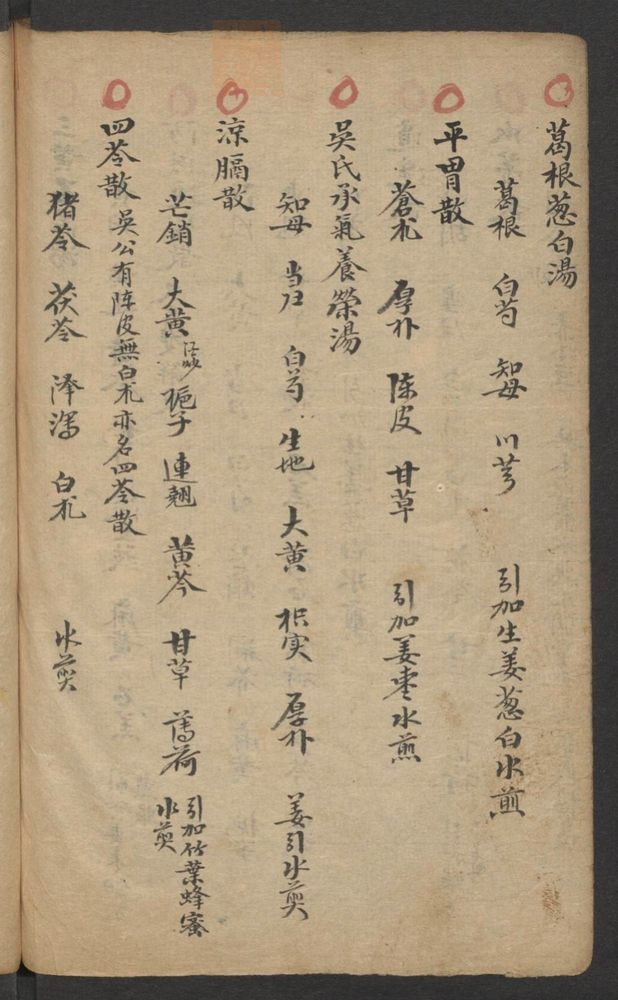 葛根葱白湯
葛根 白芍 知母 川芎 引加生姜葱白水煎
平胃散
蒼朮 厚朴 陈皮 甘草 引加姜枣水煎
吳氏承氣養榮湯
知母 当归 白芍 生地 大黄 枳实 厚朴 姜引水煎
涼膈散
芒硝 大黄 梔子 連翹 黄芩 甘草 薄荷 引加竹葉蜂蜜水煎
四苓散 吳公有陈皮無白朮亦名四苓散
猪苓 茯苓 泽泻 白朮 水煎